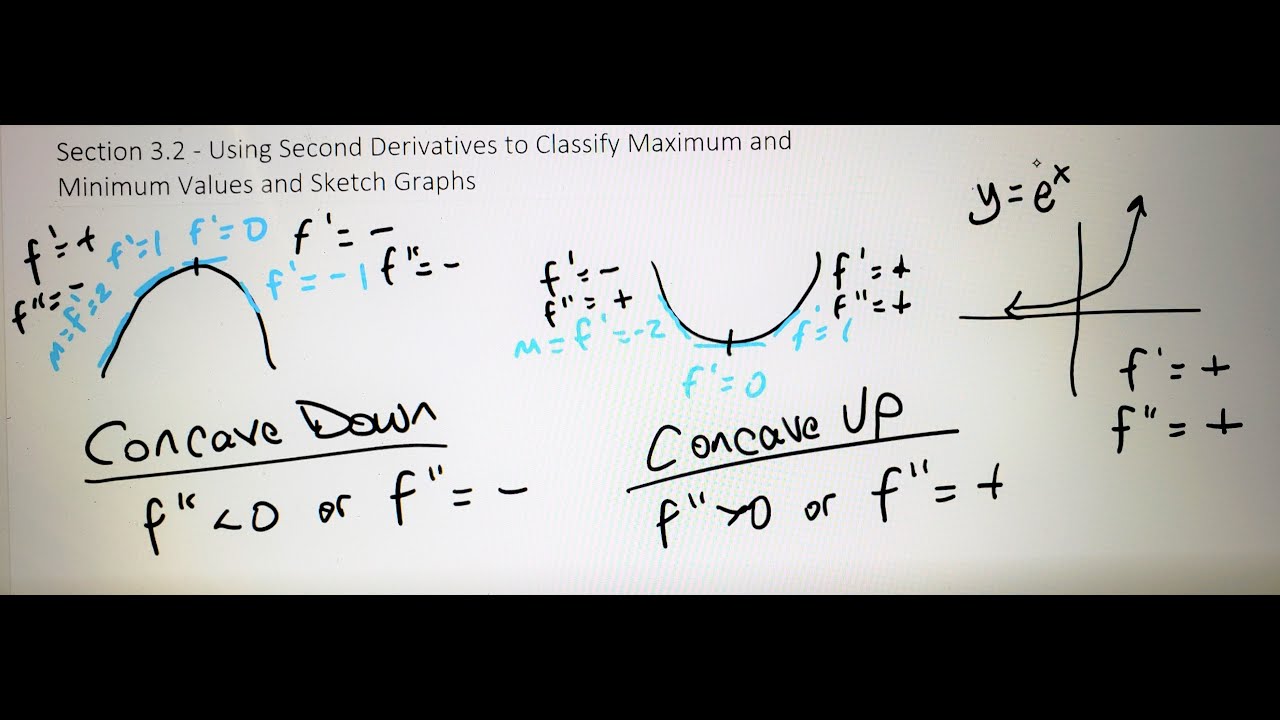 Section 3.2 - Using Second Derivatives to Classify Maximum and
Minimum Values and Sketch Graphs
f' = +
f'' = -
m = f' = 2
f' = 1
f' = 0
f' = -
f'' = -
f' = -1
Concave Down
f'' < 0 or f'' = -
f' = -
f'' = +
m = f' = -2
f' = 0
f' = +
f'' = +
f' = 1
Concave Up
f'' > 0 or f'' = +
y = e^x
f' = +
f'' = +